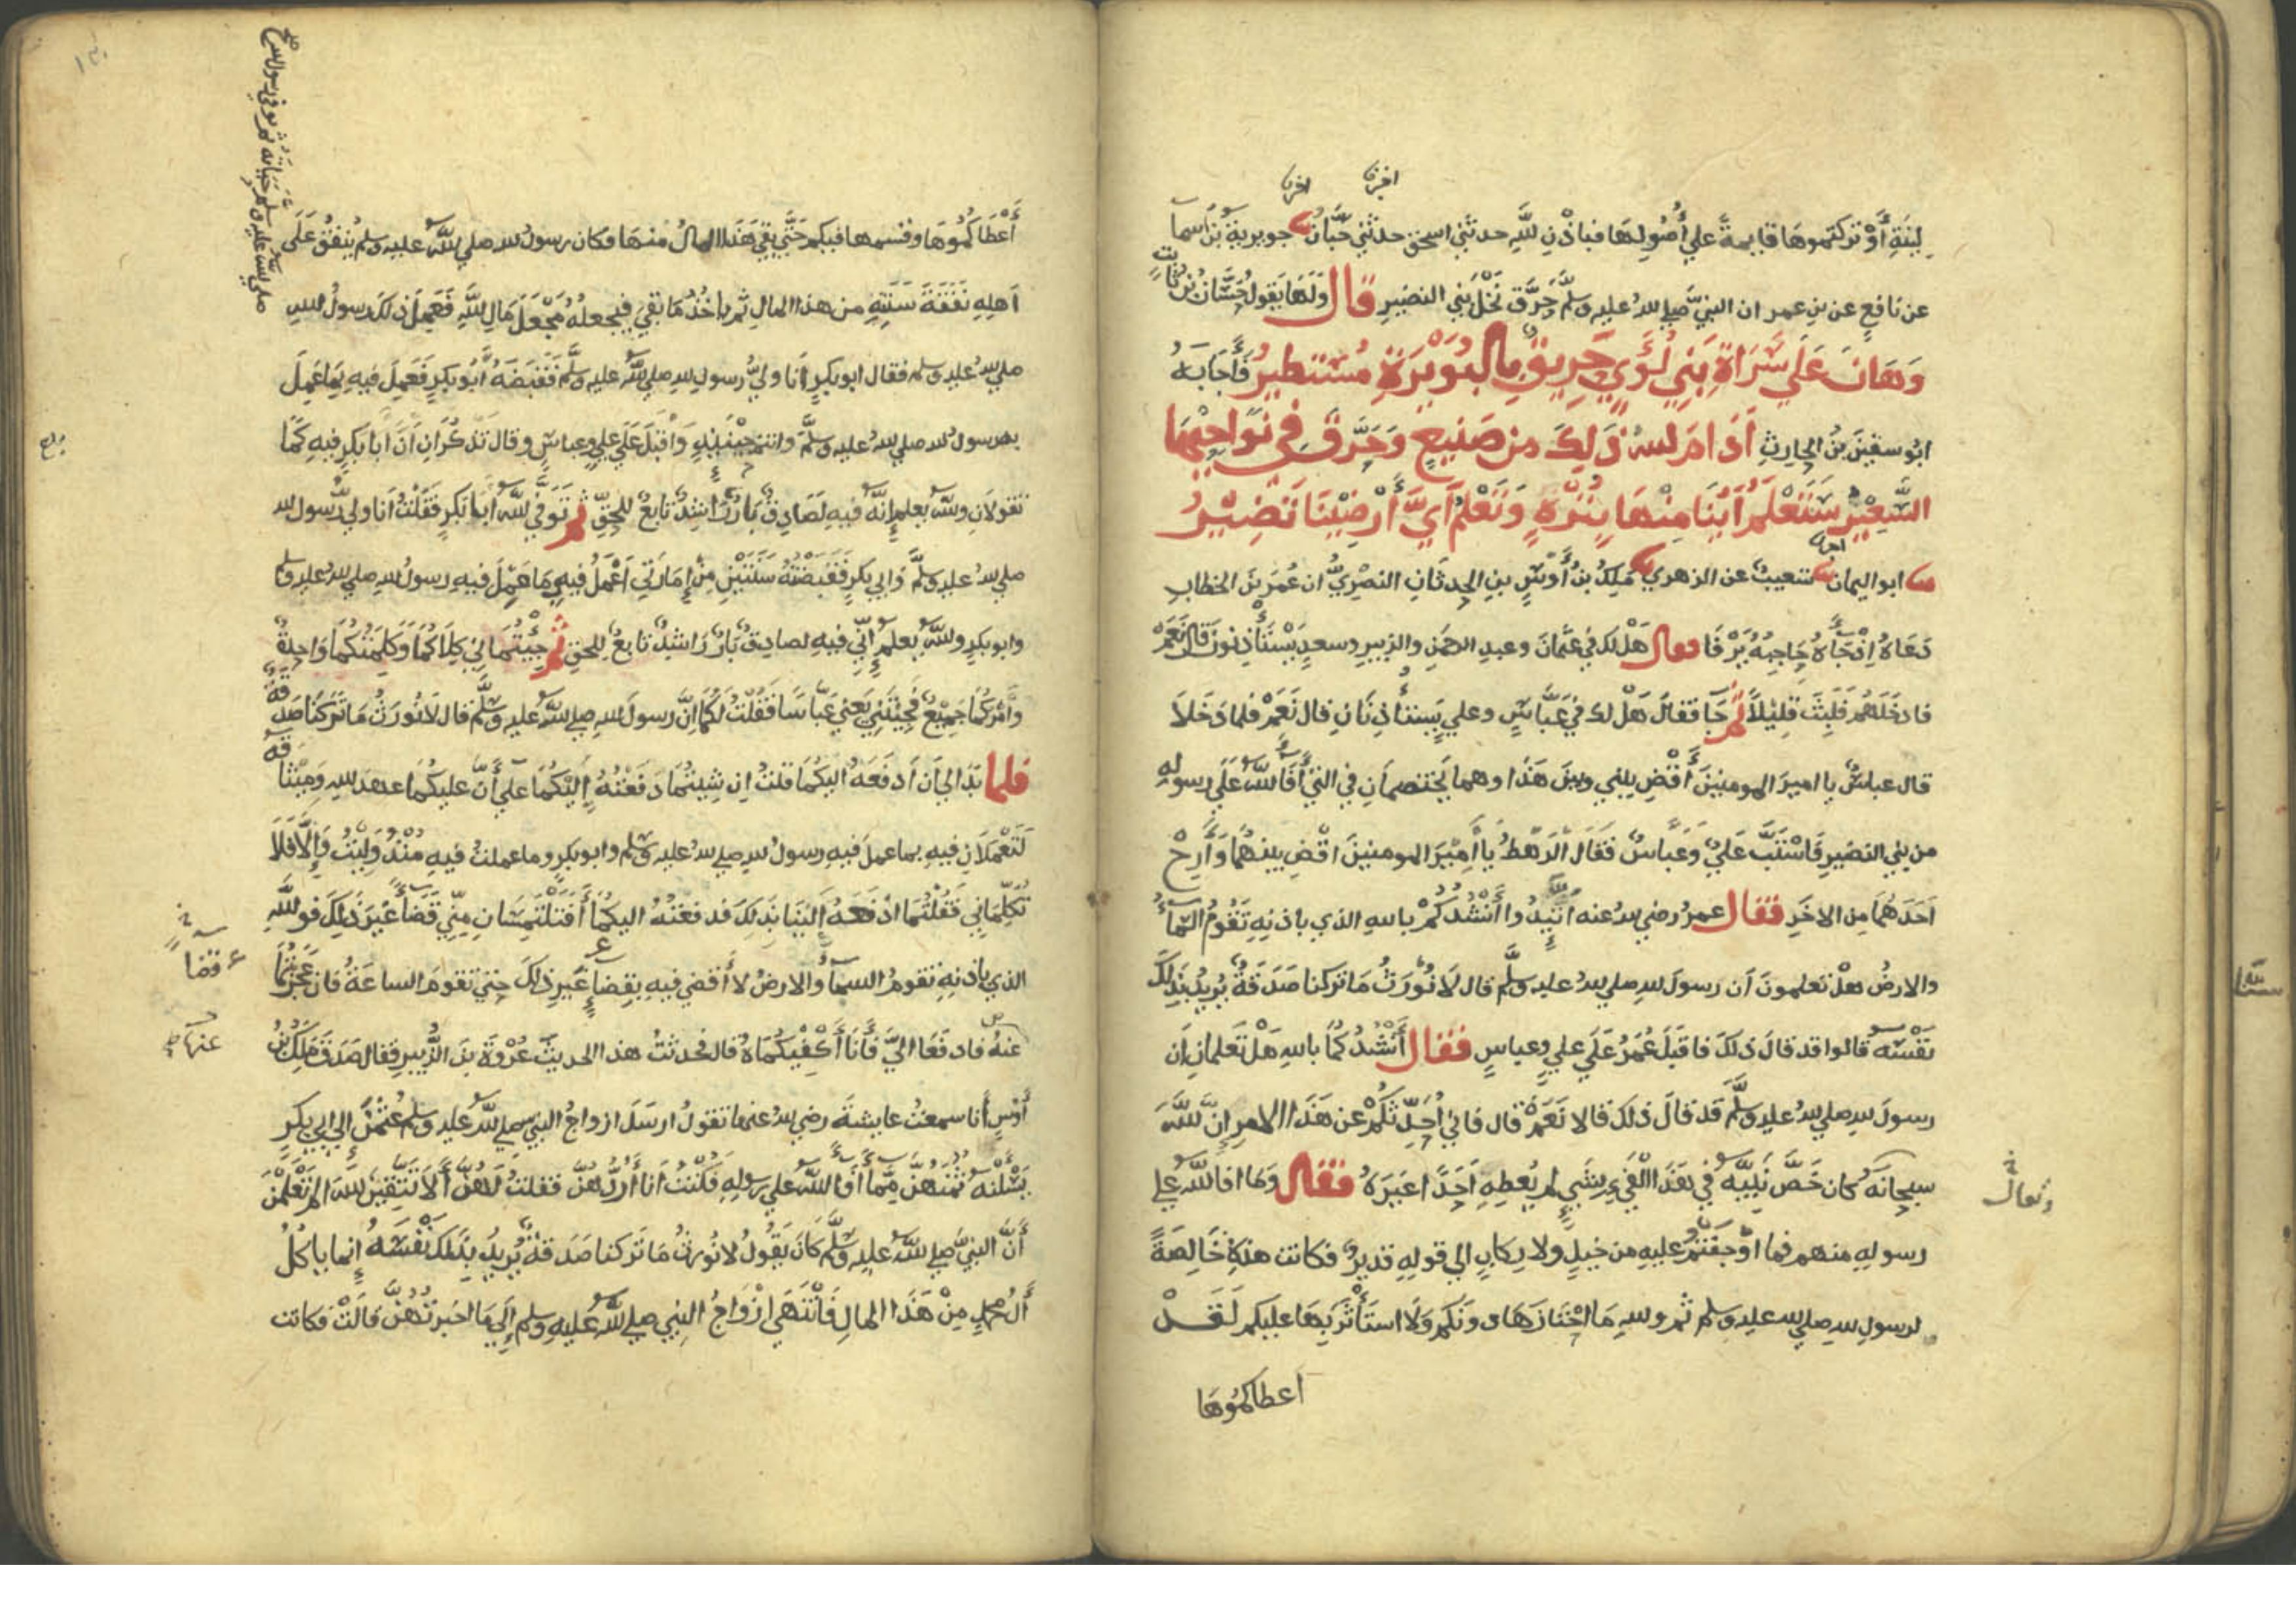 اخبرنا اخبرنا
لِينَةٍ أَوْ تركتموهَا قايمةً علي أُصُولِهَا فباذْنِ للَّهِ حدثني اسحق حدثني حَبَّانُ جويريةُ بْنُ اسما
عن نافعٍ عن بنِ عمر ان النبيَّ صلي للهُ عليه وسلَّم حَرَّق نَخْلَ بَنِي النضيرِ قال وَلَهَا يَقول حَسَّانُ بْنُ ثابتٍ
وَهَانَ عَلَي سَرَاةِ بَنِي لُؤَيٍّ حَرِيقٌ بِالبُوَيْرَةِ مُسْتَطِيرُ فَأَجَابَهُ
ابُو سفينَ بنُ الحارِثِ أَدَامَ للهُ ذَلِكَ من صَنيعٍ وَحَرَّقَ في نَوَاحِيْهَا
السَّعِيْرُ سَتَعْلَمُ أَيُّنَا مِنْهَا بِنُزْهٍ وَتَعْلَمُ أَيَّ أَرْضِيْنَا تَضِيْرُ
اخبرنا
ابو اليمان شعيبٌ عن الزهري مَلِكُ بنُ أَوْسِ بنِ الحدثَانِ النصْرِيُّ ان عُمَرَ بنَ الخطابِ
دَعَاهُ اِذْ جَآءَهُ حَاجِبُهُ يَرْفَا فقال هَلْ لك في عثمَانَ وعبدِ الرحمَنِ والزبيرِ وسعدٍ يَسْتَأْذِنُونَ قَالَ نَعَمْ
فادخَلَهُم فَلَبِثَ قليْلًا ثُمَّ جَا فقال هَلْ لك في عَبَّاسٍ وعليٍ يَستاذِنَانِ قال نَعَمْ فلما دَخَلَا
قال عباسٌ يا اميرَ المومنينَ أَقْضِ بيني وبين هَذَا وهما يَختصمَانِ في التي أَفَا للَّهُ عَلَي رسولِهِ
من بني النضيرِ فَاسْتَبَّ عَليٌ وَعَبَّاسٌ فقَالَ الرَهْطُ يا أَمِيْرَ المومنينَ اقْضِ بينهُمَا وَأَرِحْ
أَحَدَهُمَا مِن الاخَرِ فقال عمرُ رضي للهُ عنه اتَّيِدُوا أَنْشُدُكُمْ باللهِ الذي باذنِهِ تَقُومُ السَّمَآءُ
والارضُ هلْ تعلمونَ أن رسولَ للهِ صلي للهُ عليه وسلَّم قال لَا نُورَثُ مَا تركنا صَدَقةٌ يُرِيدُ بِذَلِكَ
نَفْسَهُ قالوا قد قالَ ذَلكَ فاقبَلَ عُمَرُ عَلَي عليٍ وعباسٍ فقال أَنْشُدُكُمَا باللهِ هَلْ تَعلمانِ أن
رسولَ للهِ صلي للهُ عليه وسلَّم قد قالَ ذلكَ قالا نَعَمْ قال فاني أُحَدِّثُكُمْ عن هَذَا الامرِ إنَّ للَّهَ
سبحانَهُ كان خَصَّ نَبِيَّهُ في هَذَا الْفَيِ بِشَيٍ لم يُعطِهِ أَحَدًا غَيرَهُ فقال وَمَا افا للَّهُ علي
وتعالى
رسولِهِ منهم فما اوْجَفْتُمْ عليهِ من خيلٍ ولا رِكابٍ الي قوله قديرٌ فكانت هذهِ خَالِصَةً
لرسولِ للهِ صلي لله عليه وسلم ثم وللهِ مَا احْتَازَهَا دونَكُم وَلَا استَأثَرَ بِهَا عليكم لَقَدْ
اعطاكمُوهَا
١٣٠
أَعْطَاكُمُوهَا وقسمها فيكم حَتَّي بقي هَذَا المالُ منهَا فكان رسولُ لله صلي للَّهُ عليه وسلم يُنفقُ عَلَي
اَهلِهِ نَفَقَةَ سَنَتِهِم من هذا المالِ ثُمَّ يَاخُذُ مَا بَقِيَ فيجعلُهُ مَجْعَلَ مَالِ للَّهِ فَعَمِلَ ذلكَ رسولُ للهِ
صلي للهُ عليه وسلم حَيَاتَهُ ثُم تُوفي رسولُ لله صلي للهُ عليه وسلم
صلي للهُ عليه وسلم فقال ابو بكرٍ أَنَا وليُّ رسولِ للهِ صلي للَّهُ عليه وسلَّم فَقَبَضَهُ أَبُو بكرٍ فَعَمِلَ فيهِ بِمَا عَمِلَ
به رسولُ لله صلي للهُ عليه وسلَّم وانتم حِيْنَيِذٍ وَأَقْبَلَ عَلَي عليٍ وعباسٍ وقال تَذْكُرَانِ أَنَّ أَبا بَكرٍ فيهِ كَمَا
تقولَانِ وللَّهُ يعلم إِنَّهُ فيهِ لَصَادِقٌ بَارٌّ رَاشِدٌ تَابعٌ للحقِّ ثم تَوَفَّي للَّهُ أَبا بكرٍ فَقُلْتُ أَنَا وليُّ رسول لله
صلي للهُ عليه وسلَّم وَابي بكرٍ فَقَبَضْتُهُ سَنَتَيْنِ مِنْ إِمَارَتِي أَعْمَلُ فيهِ مَا عَمِلَ فيهِ رسولُ للهِ صلي للهُ عليه وسلم
وابو بكرٍ وللَّهُ يعلم إِنِّي فيهِ لصادِقٌ بَارٌّ رَاشدٌ تَابعٌ للحقِ ثم جِيتُمَاني كِلَاكُمَا وَكَلِمَتُكُمَا وَاحِدةٌ
وَأَمْرُكُمَا جَمِيْعٌ فَجِيْتَنِي يَعْنِي عَبَّاسَا فقُلْتُ لَكُمَا إِنَّ رسولَ للهِ صلي للَّهُ عليه وسلَّم قال لَا نُورَثُ مَا تَرَكْنَا صَدَقَةٌ
فلما بَدَا لي أَن أَدفَعَهُ اليكمَا قلتُ ان شِيتُمَا دَفَعْتُهُ إِلَيْكُمَا علَي أَنَّ عليكُمَا عهدَ للهِ وَمِيْثَاقَهُ
لَتَعْمَلَانِ فيهِ بما عملَ فيهِ رسولُ للهِ صلي للهُ عليه وسلم وابو بكرٍ وما عملتُ فيهِ مُنْذُ وَلِيْتُ وَإِلَّا فَلَا
تُكَلِّمَانِي فَقُلْتُمَا ادْفَعْهُ إِلَيْنَا بِذَلِكَ فدفعْتُهُ اليكمَا أَفَتَلْتَمِسَانِ مِنِّي قَضَاءً غَيْرَ ذَلِكَ فوللَّهِ
الذي باذنِهِ تقومُ السمآءُ والارضُ لا أَقضي فيهِ بِقَضَاءٍ غَيرِ ذلكَ حتي تقومَ الساعَةُ فان عَجَزْتُمَا
قضا
عنهُ فادفَعَا اليَّ فَأَنَا أَكْفِيْكُمَاهُ قال فحدثتُ هذا الحديثَ عُرْوَةَ بنَ الزُّبيرِ فقال صَدَقَ مَلِكُ بْنُ
عنها
أَوْسٍ أَنا سمعتُ عايشةَ رضي للهُ عنها تقولُ ارسَلَ ازواجُ النبي صلي للَّهُ عليه وسلم عُثمنَ إلي ابي بكرٍ
يَسْلْنَهُ ثُمُنَهُنَّ مِمَّا أَفَآءَ للَّهُ علي رسولِهِ فَكُنْتُ أَنَا أَرُدُّهُنَّ فقلتُ لَهُنَّ أَلَا تَتَّقِيْنَ للَّهَ الم تَعْلَمْنَ
أَنَّ النبيَّ صلي للَّهُ عليه وسلَّم كَانَ يَقُولُ لا نُورثُ مَا تَركنا صَدَقةٌ يُرِيدُ بِذَلكَ نَفْسَهُ إِنما ياكُلُ
أَلُ محمدٍ مِنْ هَذَا المالِ فَانْتَهَي ازْوَاجُ النبي صلي للَّهُ عَليهِ وسلم إِلَي مَا اخبرتُهُنَّ قَالَتْ فكانت